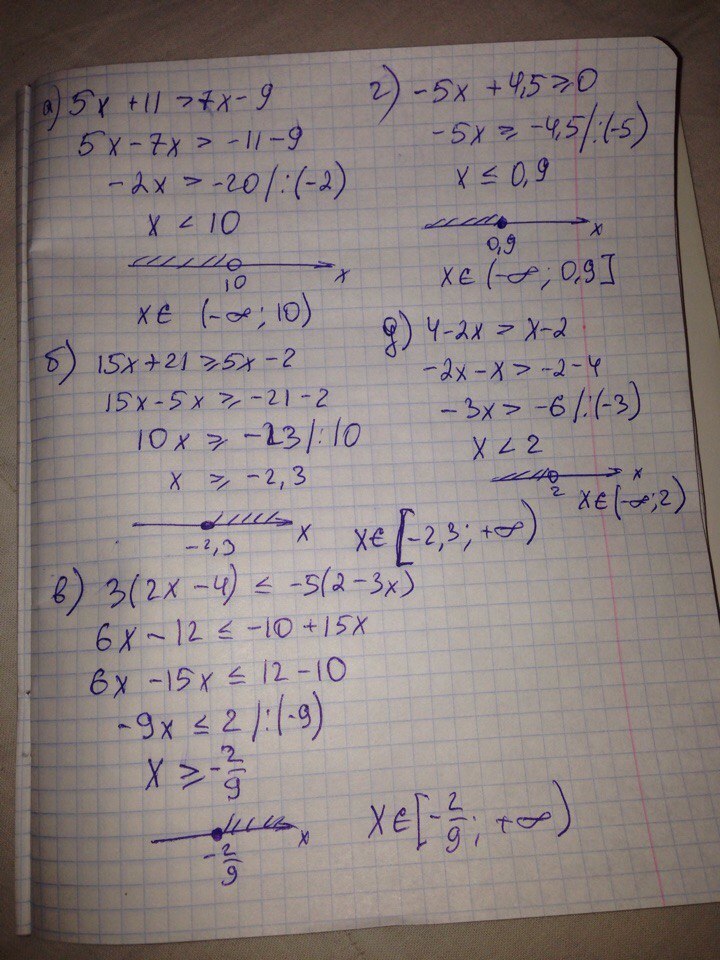 а) 5x + 11 > 7x - 9
5x - 7x > -11 - 9
-2x > -20 /:(-2)
x < 10
10 x
x ∈ (-∞; 10)
б) 15x + 21 ⩾ 5x - 2
15x - 5x ⩾ -21 - 2
10x ⩾ -23/:10
x ⩾ -2,3
-2,3 x
x ∈ [-2,3; +∞)
в) 3(2x - 4) ≤ -5(2 - 3x)
6x - 12 ≤ -10 + 15x
6x - 15x ≤ 12 - 10
-9x ≤ 2 /:(-9)
x ⩾ -2/9
-2/9 x
x ∈ [-2/9; +∞)
г) -5x + 4,5 ⩾ 0
-5x ⩾ -4,5/:(-5)
x ≤ 0,9
0,9 x
x ∈ (-∞; 0,9]
д) 4 - 2x > x - 2
-2x - x > -2 - 4
-3x > -6 /:(-3)
x < 2
2 x
x ∈ (-∞; 2)